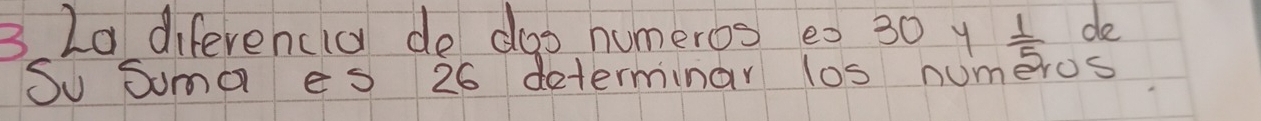 3 La diferencia de dos numeros es 30 y 1/5 de
Su Suma es 26 determinar los numeros.